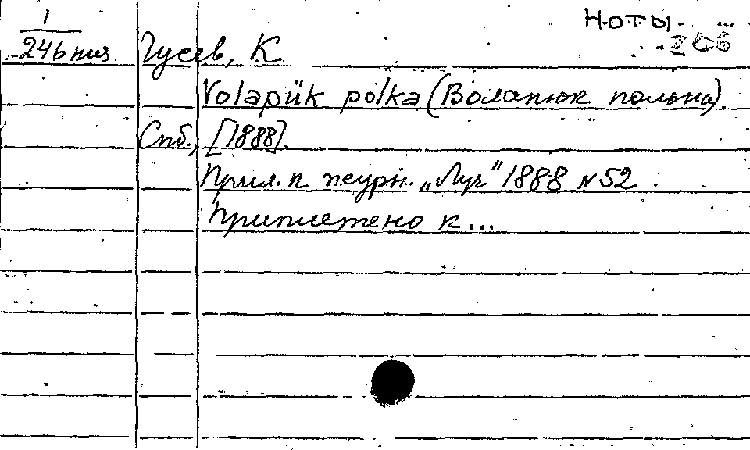 1
246 низ
Ноты. ...
Гусев, К
Volapük polka (Волапюк полька).
Спб., [1888].
Прил. к журн. „Луч“ 1888 N 52.
Приплетено к...